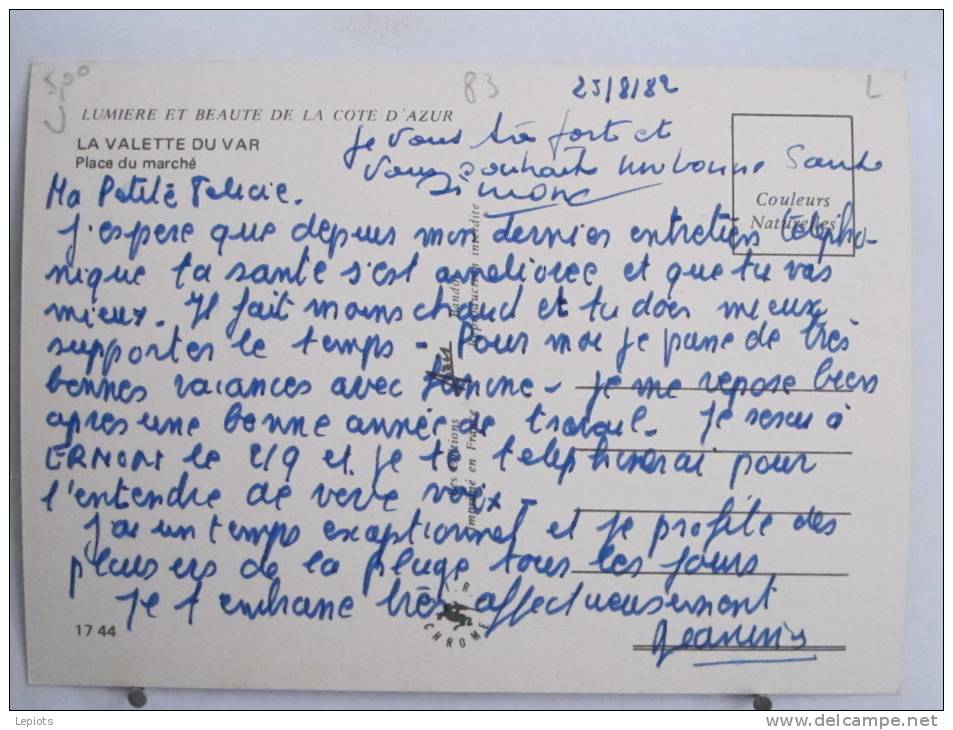 5,00
83
25/8/82
L
LUMIERE ET BEAUTE DE LA COTE D'AZUR
LA VALETTE DU VAR
Place du marché
Je vous très fort et
vous souhaite une bonne Santé
Simone
Couleurs
Naturelles
Ma Petite Felicie.
J'espere que depuis mon dernier entretien télépho-
nique ta santé s'est améliorée et que tu vas
mieux. Il fait moins chaud et tu dois mieux
supporter le temps - Pour moi je passe de très
bonnes vacances avec Simone - Je me repose bien
apres une bonne année de travail. Je serai à
ERMONT le 2/9 et je te telephonerai pour
t'entendre de vive voix -
J'ai un temps exceptionnel et je profite des
plaisirs de la plage tous les jours
Je t'embrasse très affectueusement
Jeannine
des Editions Bandol
Imprimé en France Reproduction interdite
I.R.
CHROME
17 44
Lepiots
www.delcampe.net